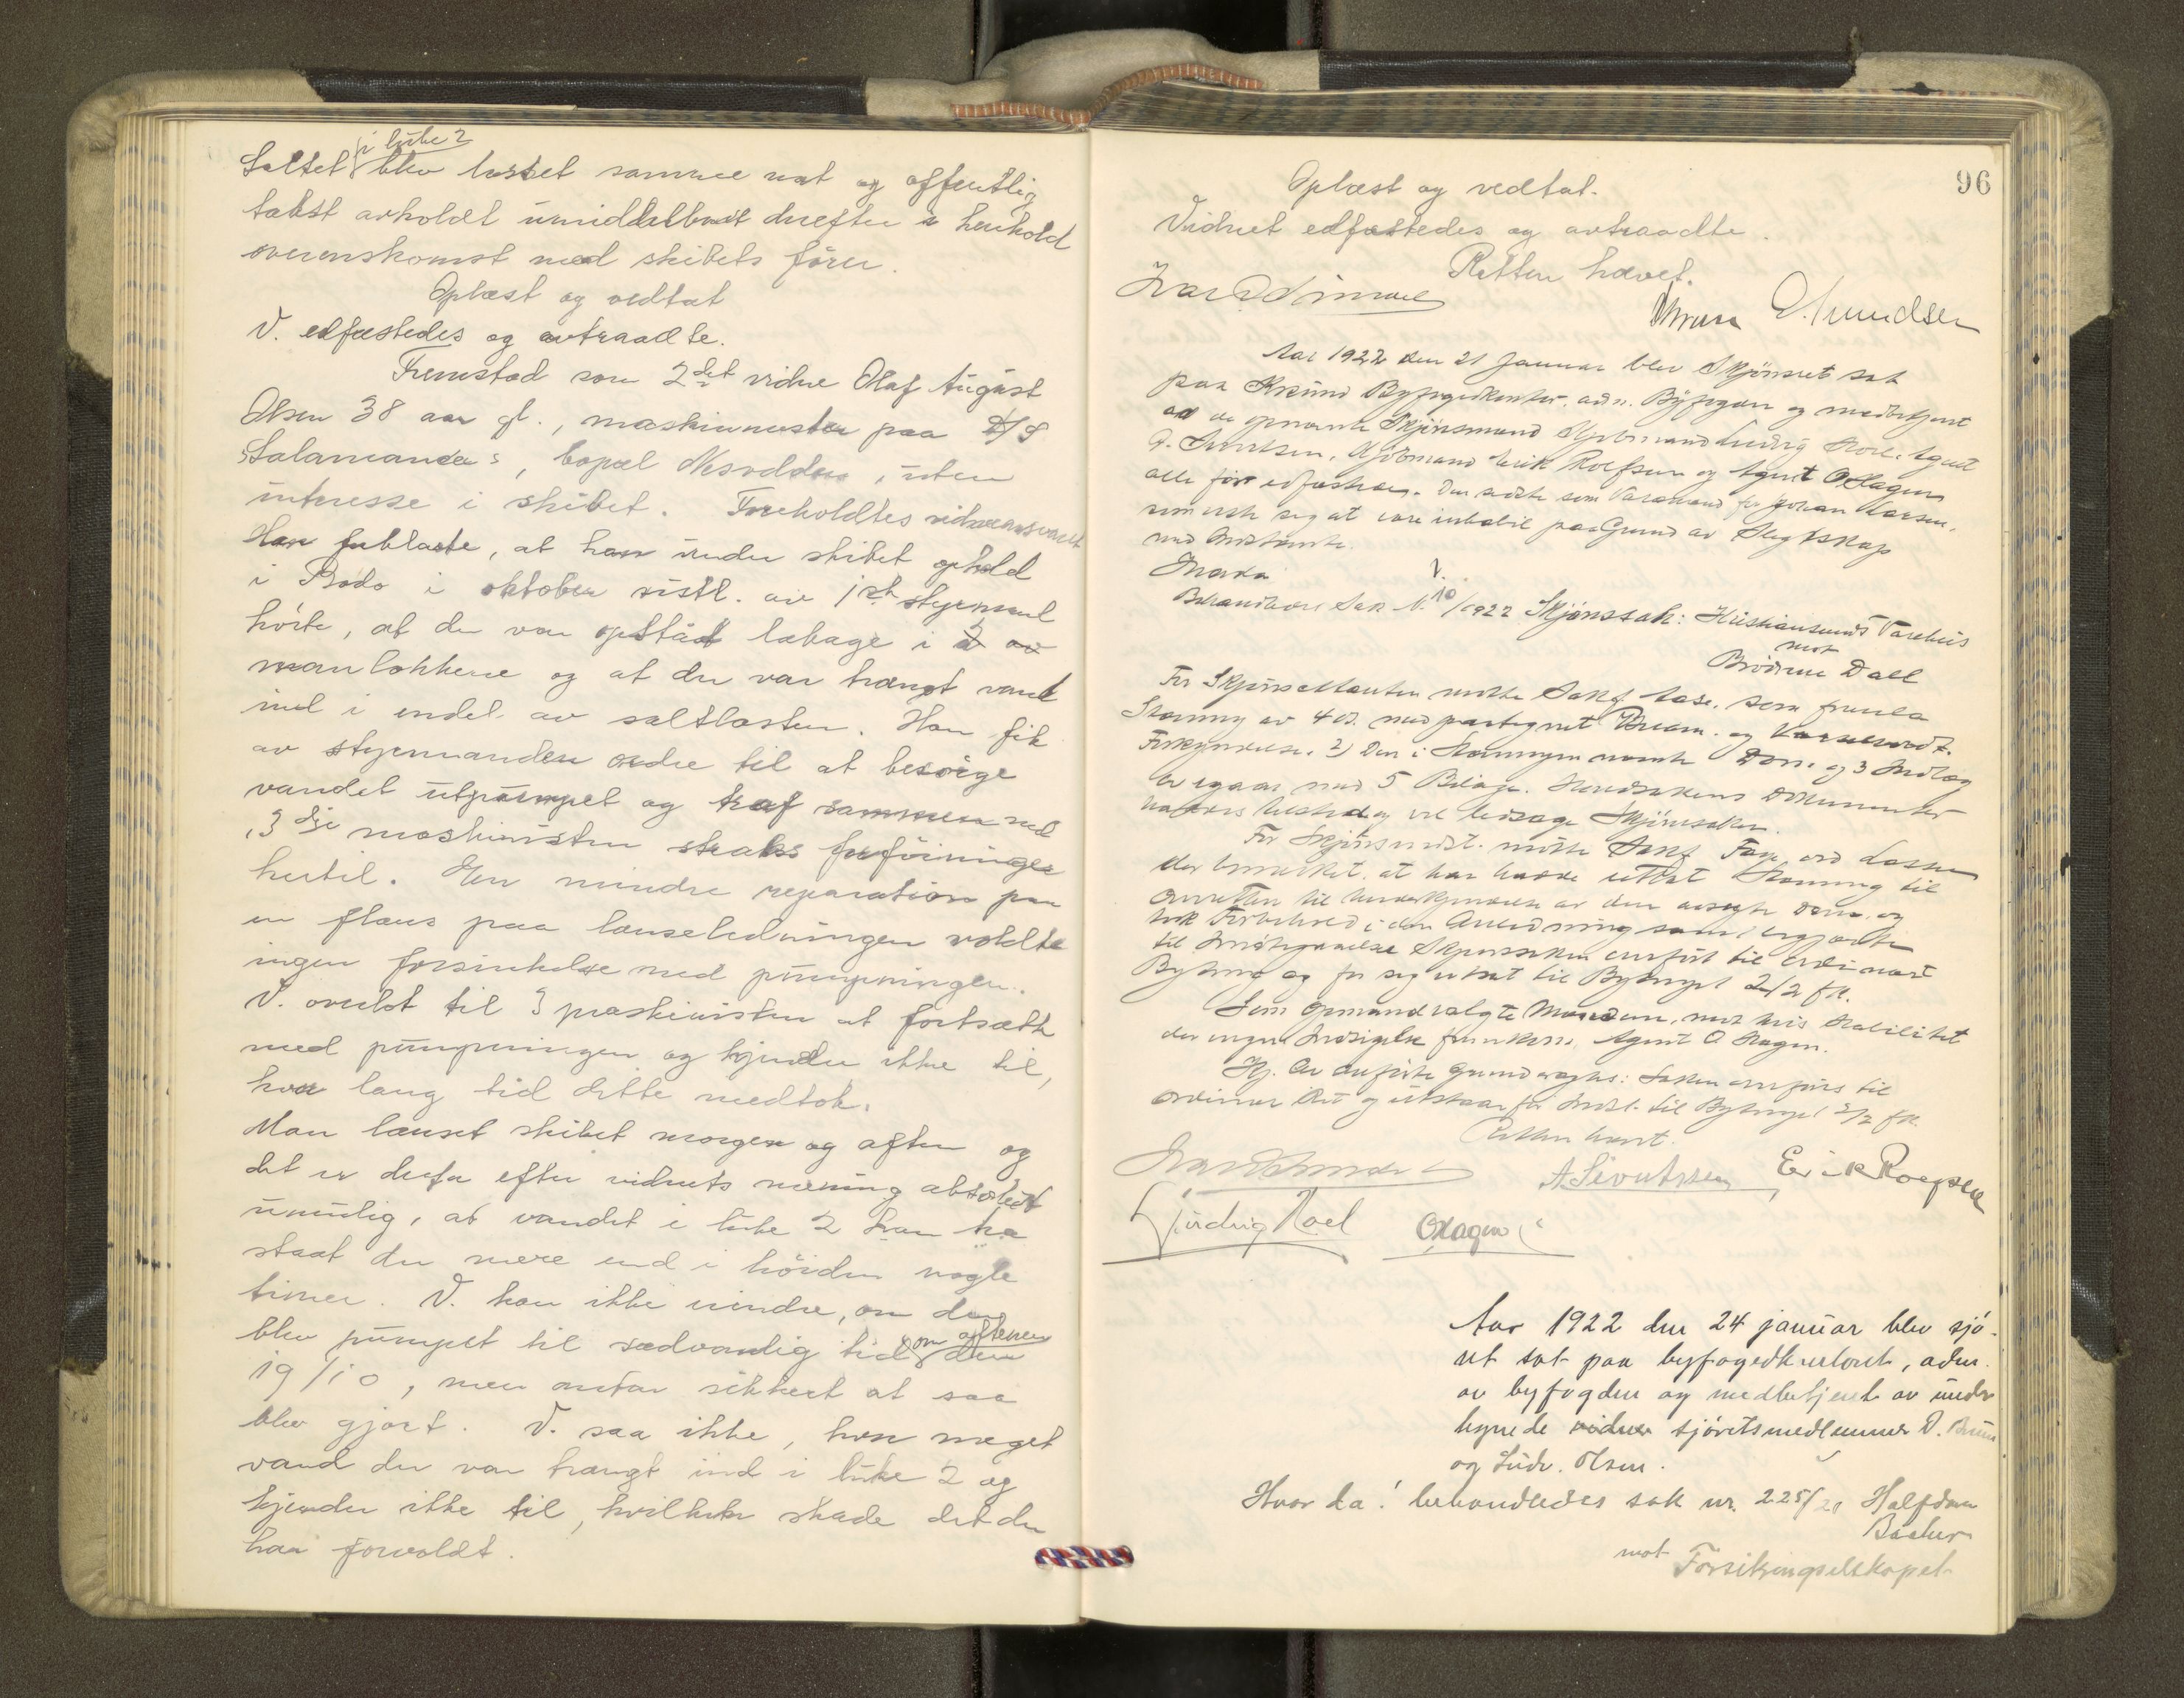 Saltet i luke 2 blev losset samme nat og offentlig
takst avholdt umiddelbart derefter i henhold
overenskomst med skibets fører.
Oplæst og vedtat
V. edfæstedes og avtraadte.
Fremstod som 2det vidne Olaf August
Olsen 38 aar gl., maskinmester paa D/S
"Salamander", bopæl Nesodden, uten
interesse i skibet. Foreholdtes vidneansvaret
Han forklarte, at han under skibet ophold
i Bodø i oktober sistl. av 1ste styrmand
hørte, at der var opstaat lækage i 2 av
mandlokkene og at der var trængt vand
ind i endel av saltlasten. Han fik
av styrmanden ordre til at besørge
vandet utpumpet og traf sammen med
3dje maskinisten straks forføininger
hertil. En mindre reparation paa
en flens paa lænseledningen voldte
ingen forsinkelse med pumpningen.
V. overlot til 3 maskinisten at fortsætte
med pumpningen og kjender ikke til,
hvor lang tid dette medtok.
Man lænset skibet morgen og aften og
det er derfor efter vidnets mening absolut
umulig, at vandet i luke 2 kan ha
staat der mere end i høiden nogle
timer. V. kan ikke erindre, om der
blev pumpet til sædvanlig tid om aftenen den
19/10, men antar sikkert at saa
blev gjort. V. saa ikke, hvor meget
vand der var trængt ind i luke 2 og
kjender ikke til, hvilken skade det der
har forvoldt.
96
Oplæst og vedtat.
Vidnet edfæstedes og avtraadte.
Retten hævet.
Aar 1922 den 21 Januar blev Skjønsret sat
paa Krsund Byfogedkontor, adm. Byfogden og medbetjent
av de opnævnte Skjønsmænd Kjøbmand Ludvig Hoel, Agent
A. Sivertsen, Kjøbmand Erik Rolfsen og Agent O Hagen
alle før edfæstede. Den sidste som Varamand for Johan Larsen,
som viste sig at være inhabil paa Grund av Slegtskap
med Indstævnte.
Hvorda
Behandledes Sak N. 10/1922 Skjønssak: Kristiansunds Varehus
mot
Brødrene Dall
For Skjønssaksøkeren møtte Sakf. som fremla
Stævning av 4 ds. med paategnet Beram. og
Forkyndelse. 2) Den i Stævningen nævnte Dom og 3 Indlæg
av igaar med 5 Bilage. Hovedsakens Dokumenter
vil ledsage Skjønssaken.
For Skjønsindst. møtte Sakf.
der bemerket, at han hadde uttat Stævning til
Overretten til av den avsagte Dom og
tok Forbehold i den Anledning samt
til Imøtegaaelse Skjønssaken overført til ordinært
Byting og for sig utsat til Bytinget 2/2 fk.
Som Opmand valgte Mændene, mot hvis Habilitet
der ingen Indsigelse fremkom, Agent O Hagen.
Kj. Av anførte Grund vagtes: Saken overføres til
ordinær Ret og utstaar for Indst. til Bytinget 2/2 fk.
Retten hævet.
A Sivertsen Erik Rolfsen
Ludvig Hoel OHagen
Aar 1922 den 24 januar blev sjø-
ret sat paa byfogedkontoret, adm.
av byfogden og medbetjent av under-
tegnede vidner sjøretsmedlemmer D. Bruun
og Ludv. Olsen.
Hvorda: behandledes sak nr. 225/21 Halfdan
Backer
mot Forsikringselskapet